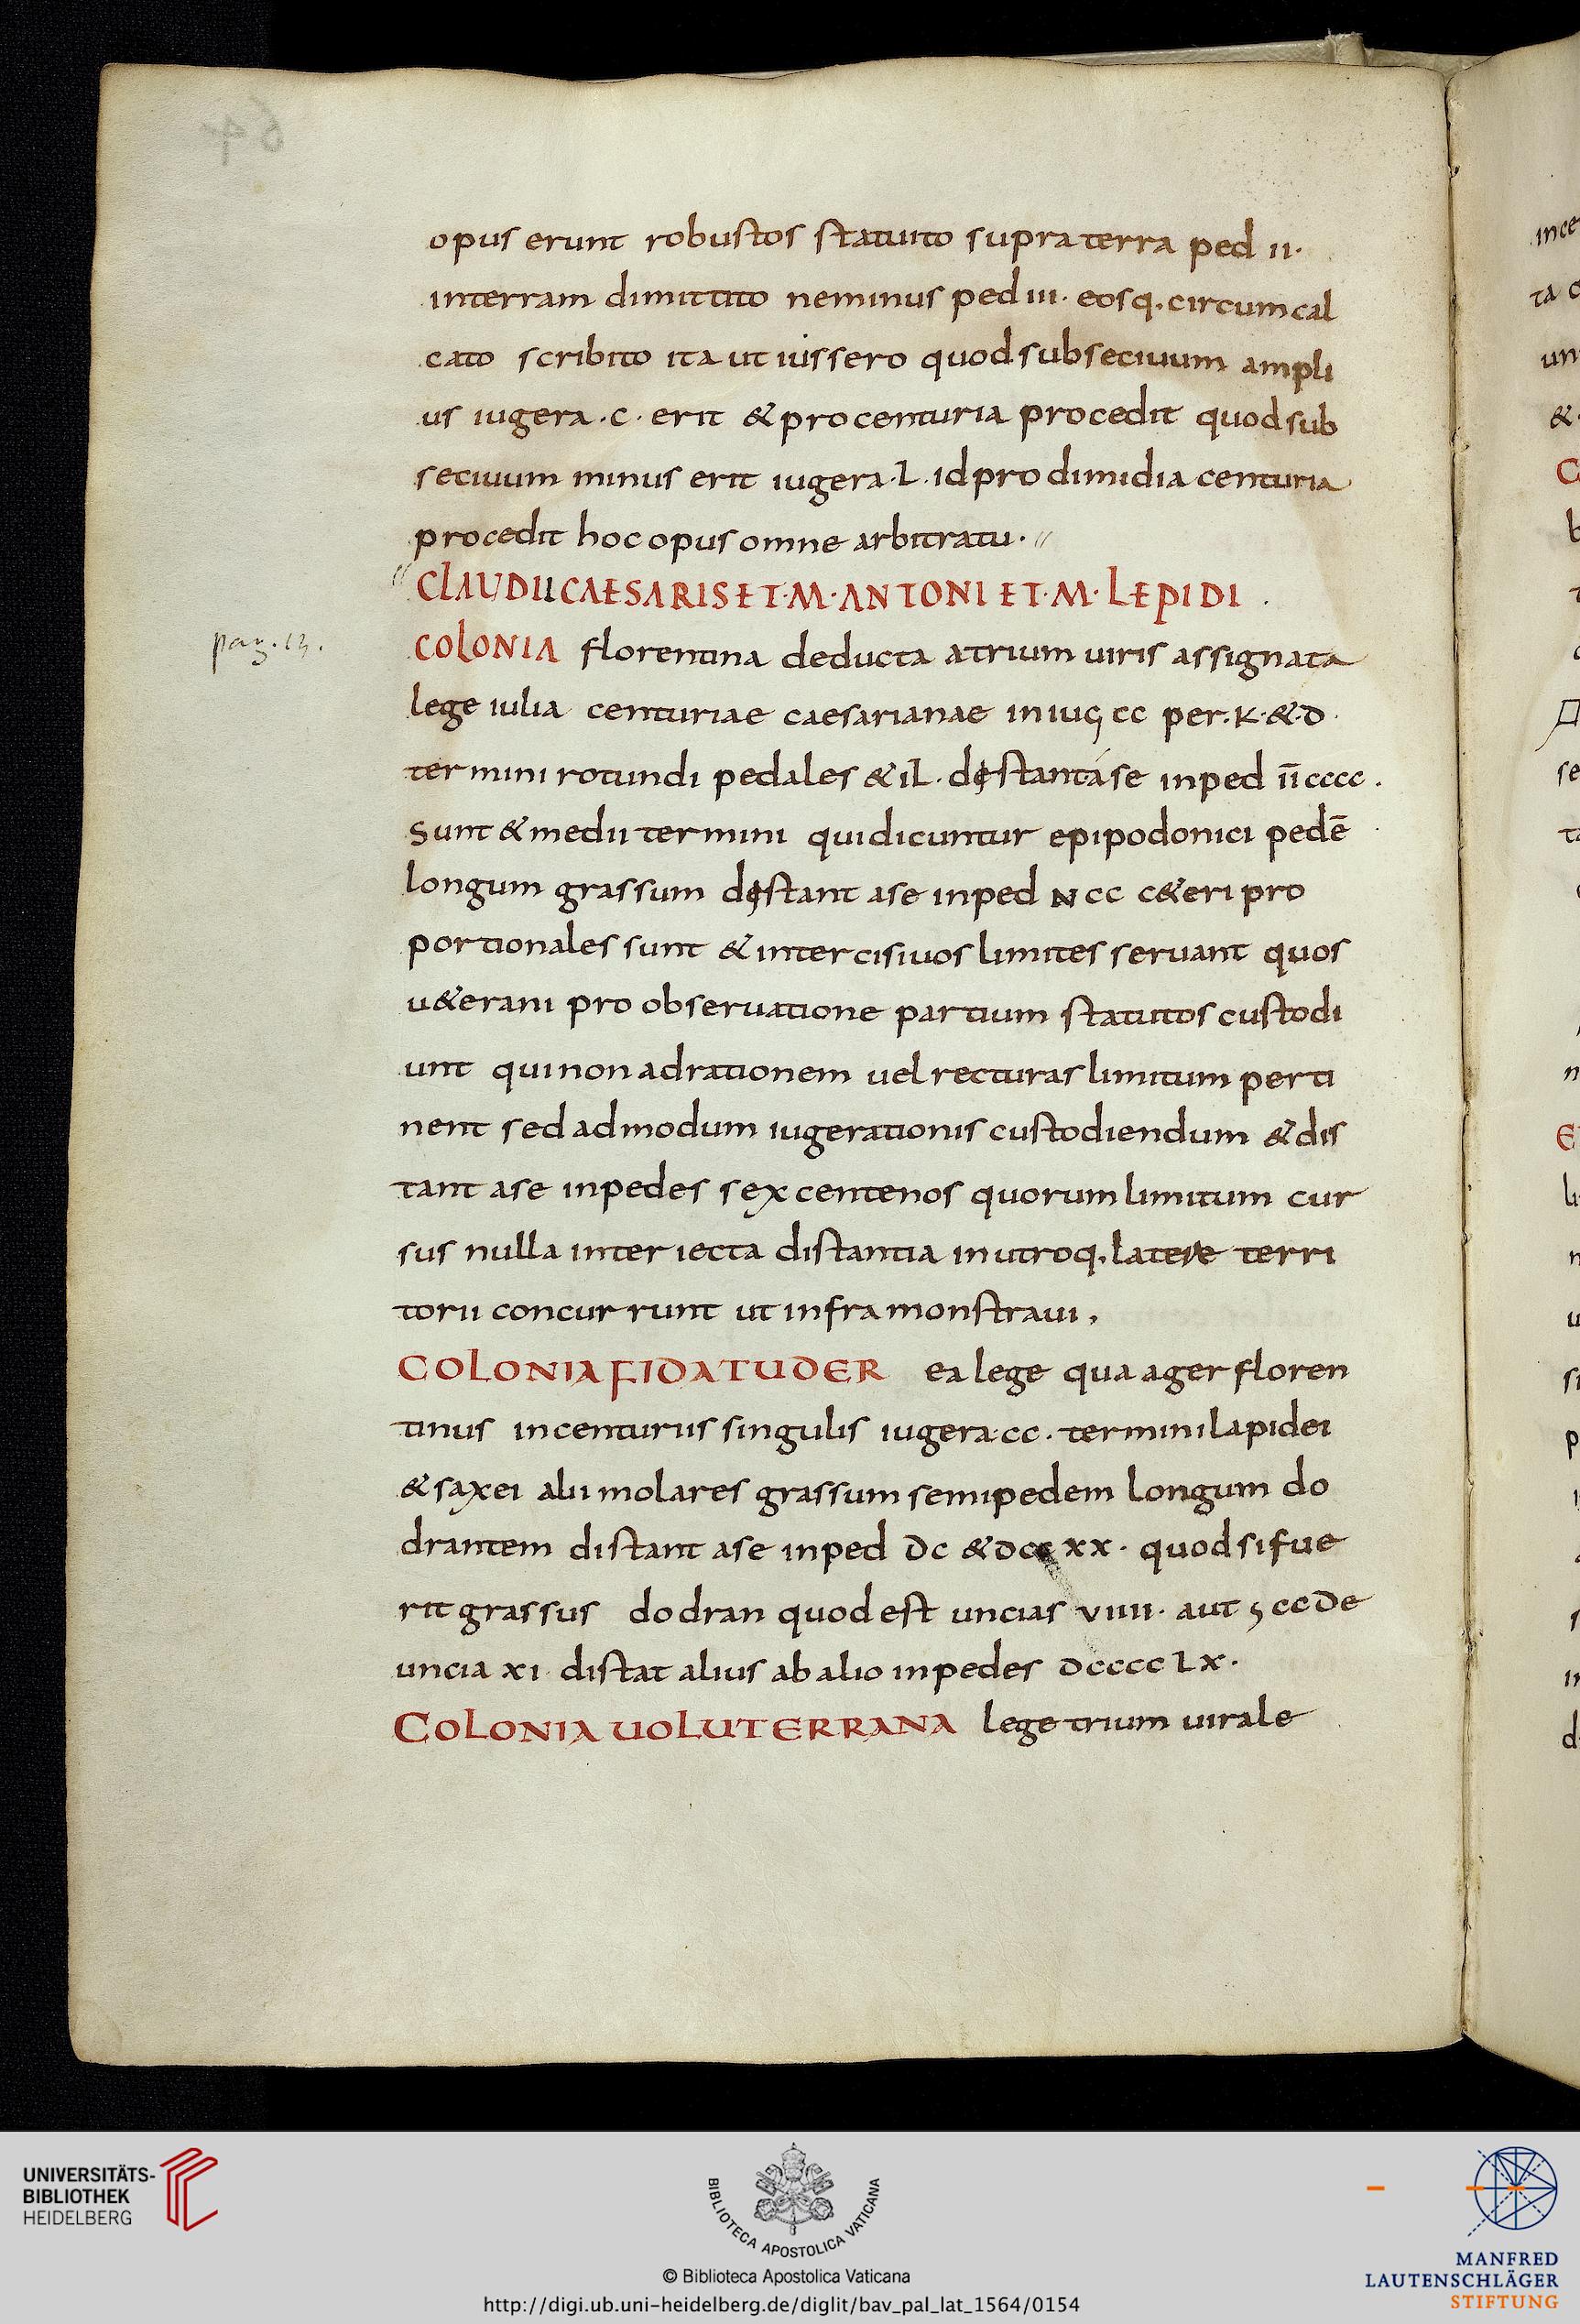 opus erunt robustos statuito supra terra ped II.
interram dimittito neminus ped III. eosq. circumcal
cato scribito ita ut iussero quod subseciuum ampli
us iugera .C. erit & pro centuria procedit quod sub
seciuum minus erit iugera .L. id pro dimidia centuria
procedit hoc opus omne arbitratu. //
// CLAUDII CAESARIS ET.M. ANTONI ET.M. LEPIDI
pag. 13.
COLONIA florentina deducta atrium uiris assignata
lege iulia centuriae caesarianae in iug CC per.K.&.D.
termini rotundi pedales & iL. destant ase inped II̅CCCC.
Sunt & medii termini qui dicuntur epipodonici pedē
longum grassum destant ase inped NCC c&eri pro
portionales sunt & intercisiuos limites seruant quos
u&erani pro obseruatione partium statutos custodi
unt qui non ad rationem uel recturas limitum perti
nent sed ad modum iugerationis custodiendum & dis
tant ase inpedes sexcentenos quorum limitum cur
sus nulla interiecta distantia in utroq. latere terri
torii concurrunt ut infra monstraui.
COLONIA FIDA TUDER ea lege qua ager floren
tinus in centuriis singulis iugera.CC. termini lapidei
& saxei alii molares grassum semipedem longum do
drantem distant ase inped DC & DCCXX. quod si fue
rit grassus dodran quod est uncias VIIII. aut ς CC De
uncia XI distat alius ab alio inpedes DCCCCLX.
COLONIA UOLUTERRANA lege trium uirale
UNIVERSITÄTS-
BIBLIOTHEK
HEIDELBERG
BIBLIOTECA APOSTOLICA VATICANA
© Biblioteca Apostolica Vaticana
http://digi.ub.uni-heidelberg.de/diglit/bav_pal_lat_1564/0154
MANFRED
LAUTENSCHLÄGER
STIFTUNG